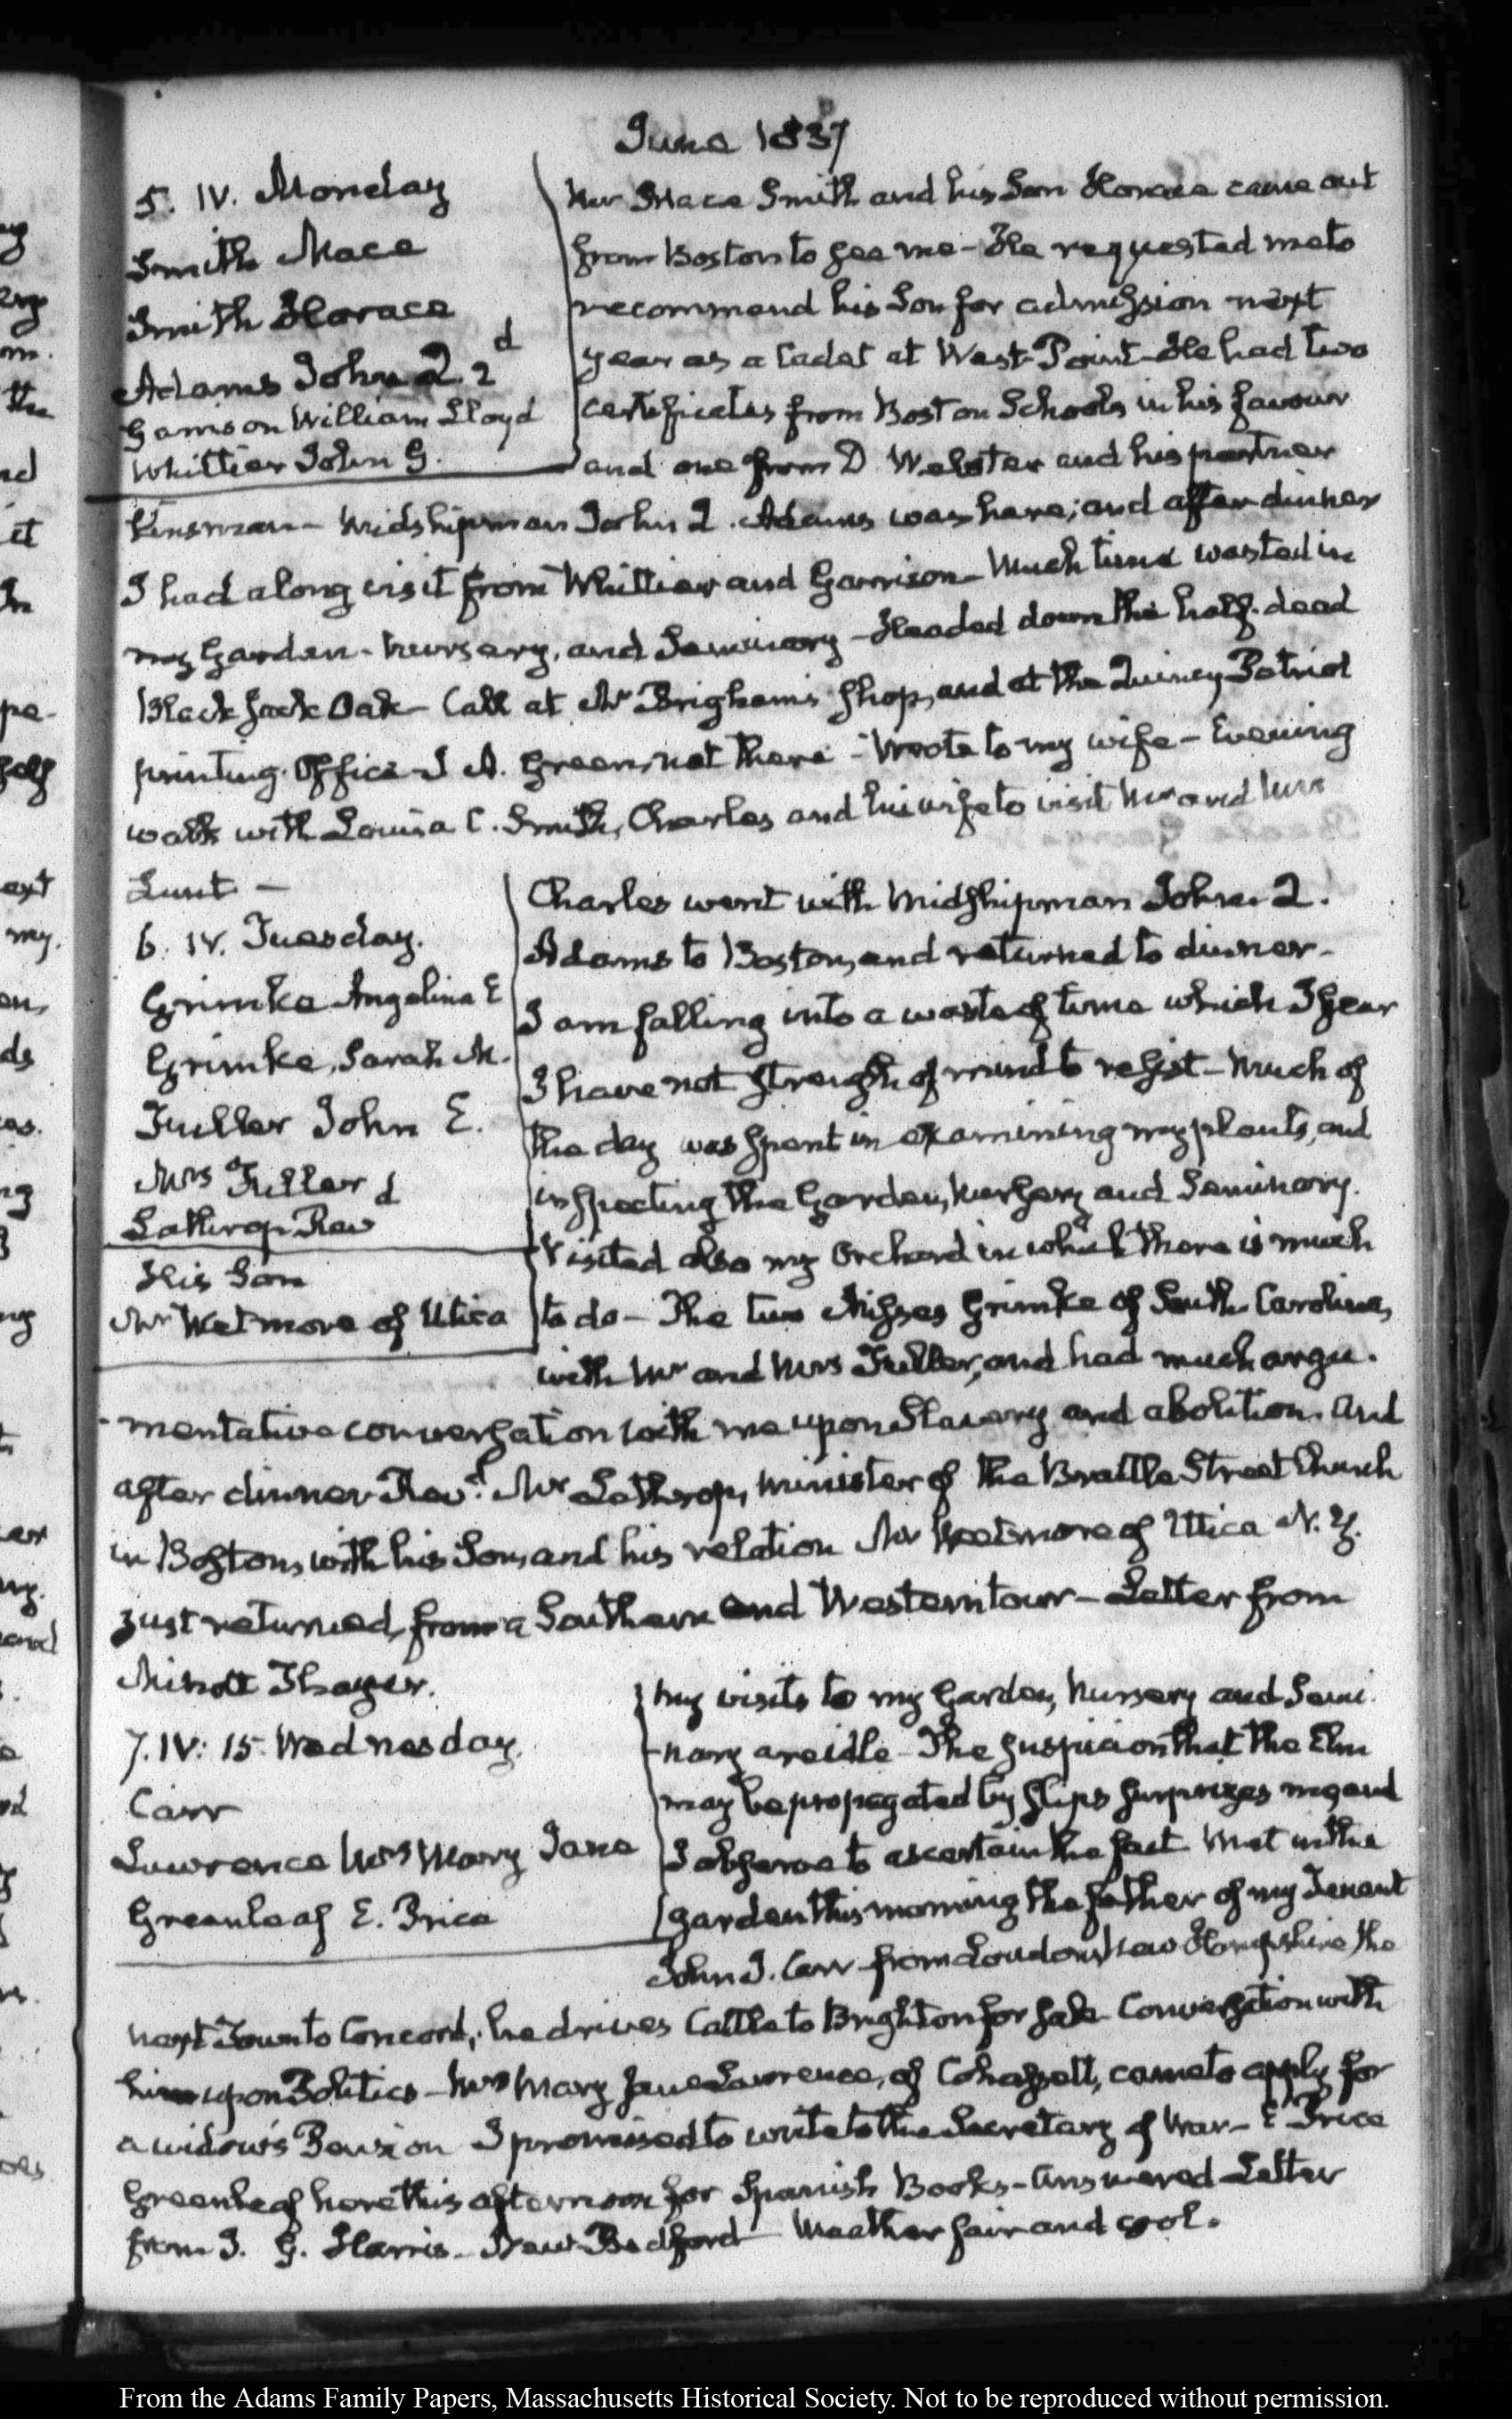 June 1837
5. IV. Monday
Smith Mace
Smith Horace
Adams John Q. 2d
Garrison William Lloyd
Whittier John G.
Mr Mace Smith and his Son Horace came out
from Boston to see me - He requested me to
recommend his Son for admission next
year as a Cadet at West-Point - He had two
certificates from Boston Schools in his favour
and one from D. Webster and his partner
Kinsman - Midshipman John Q. Adams was here; and after dinner
I had a long visit from Whittier and Garrison - Much time wasted in
my Garden - Nursery, and Seminary - Headed down the half-dead
Black Jack Oak - Call at Mr Brigham's shop, and at the Quincy Patriot
printing Office - J A. Green, not there - Wrote to my wife - Evening
walk with Louisa C. Smith, Charles and his wife to visit Mr and Mrs
Lunt -
6. IV. Tuesday.
Grimke Angelina E
Grimke, Sarah M.
Fuller John E.
Mrs Fuller
Lothrop Revd
His Son
Mr Wetmore of Utica
Charles went with Midshipman John Q.
Adams to Boston, and returned to dinner -
I am falling into a waste of time which I fear
I have not strength of mind to resist - Much of
the day was spent in examining my plants, and
inspecting the Garden, Nursery and Seminary.
Visited also my Orchard in which there is much
to do - The two Misses Grimke of South-Carolina,
with Mr and Mrs Fuller, and had much argu-
-mentative conversation with me upon Slavery and abolition. And
after dinner Revd. Mr Lothrop, Minister of the Brattle Street Church
in Boston, with his Son, and his relation Mr Wetmore of Utica N. Y.
just returned from a Southern and Western tour - Letter from
Minott Thayer.
7. IV: 15. Wednesday.
Carr
Lawrence Mrs Mary Jane
Greenleaf E. Price
My visits to my Garden, Nursery and Semi-
-nary are idle - The suspicion that the Elm
may be propagated by slips surprizes me, and
I observe to ascertain the fact. Met in the
garden this morning the father of my Tenant
John J. Carr from Loudon, New Hampshire the
next Town to Concord, he drives Cattle to Brighton for sale - Conversation with
him upon Politics - Mrs Mary Jane Lawrence, of Cohassett, came to apply for
a widow's Pension I promised to write to the Secretary of War - E Price
Greenleaf here this afternoon for Spanish Books - Answered Letter
from J. G. Harris - New-Bedford Weather fair and cool.
From the Adams Family Papers, Massachusetts Historical Society. Not to be reproduced without permission.